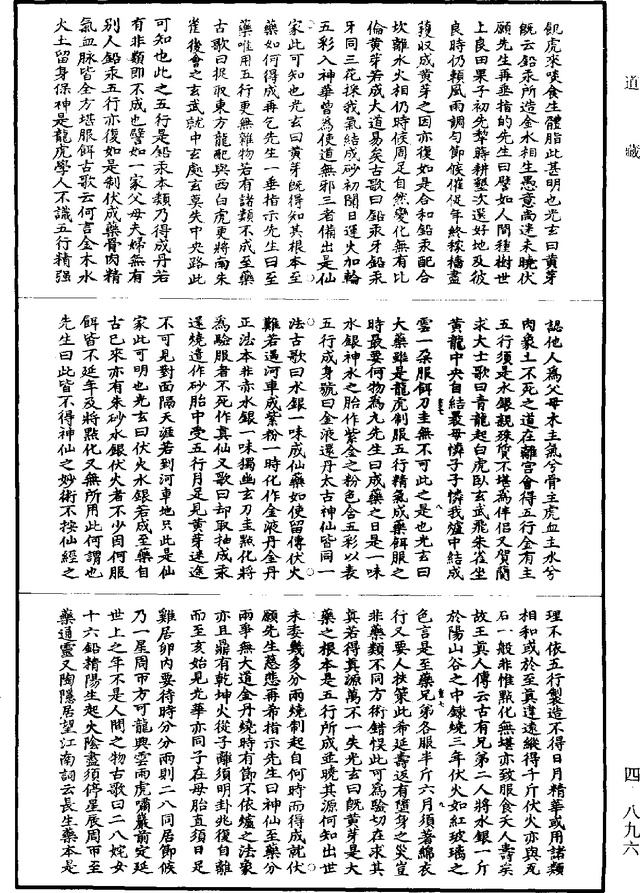 道藏
飢虎來啖食生體脂此甚明也光玄曰黃芽
旣云鉛汞所造金水相生愚意尚迷未曉伏
願先生再垂指的先生曰譬如人間種樹世
上良田果子初先犂蒔耕墾次選好地及彼
良時仍賴風雨調勻節候催促年終稼穡盡
穫收成黃芽之因亦復如是合和鉛汞配合
坎離水火相仍時候周足自然變化無有比
倫黃芽若成大道易矣古歌曰鉛汞牙鉛汞
牙同三花採我氣結成砂初開日運火加輪
五彩入神華曾為使道無邪三者備出是仙
家此可知也光玄曰黃芽旣得知其根本至
藥如何得成再乞先生一垂指示先生曰至
藥唯用五行更無雜物若有諸類不成至藥
古歌曰捉取東方龍配與西白虎更將南朱
雀後會之玄武就中玄處玄莫失中央路此
可知也此之五行是鉛汞本類乃得成丹若
有非類即不成也譬如一家父母夫婦無有
別人鉛汞五行亦復如是制伏成藥骨肉精
氣血脉皆全方堪服餌古歌云何言金木水
火土留身保神是龍虎學人不識五行精强
認他人為父母木主氣兮骨主虎血主水兮
肉象土不死之道在離宮會得五行金有主
五行須是水銀親殊質不堪為伴侶又賀蘭
求大士歌曰青龍起白虎臥玄武飛朱雀坐
黃龍中央自結裹母憐子子憐我爐中結成
雲一朶服餌刀圭無不可此之是也光玄曰
大藥雖是龍虎制服五行精氣成藥餌服之
時最要何物為尤先生曰成藥之日是一味
水銀神水之胎作紫金之粉色含五彩以表
五行成身號曰金液還丹太古神仙皆同一
法古歌曰水銀一味成仙藥如使留傳伏火
難若遇河車成紫粉一時化作金液丹金丹
正法本非赤水銀一味獨幽玄刀圭點化將
為驗服者不死作真仙又歌曰却取抽成汞
還燒造作砂胎中受五行月足見黃芽迷途
不可見對面隔天涯若到河車地只此是仙
家此可明也光玄曰伏火水銀若成至藥自
古已來亦有朱砂水銀伏火者不少因何服
餌皆不延年及將點化又無所用此何謂也
先生曰此皆不得神仙之妙術不按仙經之
理不依五行製造不得日月精華或用諸類
相和或於至真違遠縱得千斤伏火亦與瓦
石一般非惟點化無堪亦致服食夭人壽矣
故王真人傳云古有兄弟二人將水銀一斤
於陽山谷之中鍊燒三年伏火如紅玻璃之
色言是至藥兄弟各服半斤六月須著綿衣
行又要人扶策此希延壽返有墮身之災豈
非藥類不同方術錯悮此可為驗切在求其
真若得真源萬不一失光玄曰旣黃芽是大
藥之根本是五行所成並曉其源何知出世
未委幾多分兩燒制起自何時而得成就伏
願先生慈悲再希指示先生曰神仙至藥分
兩爭無大道金丹燒時有節不依爐之法象
亦且鼎有乾坤火從子離須明卦兆復自離
而至亥始見光華亦同子在母胎直須日足
雞居卵內要待時分分兩則二八同居節候
乃一星周帀方可龍興雲雨虎嘯巖前定延
世上之年不是人間之物古歌曰二八姹女
十六鉛精陽生起火陰盡須停星辰周帀至
藥通靈又陶隱居望江南詞云長生藥本是
四·八九六